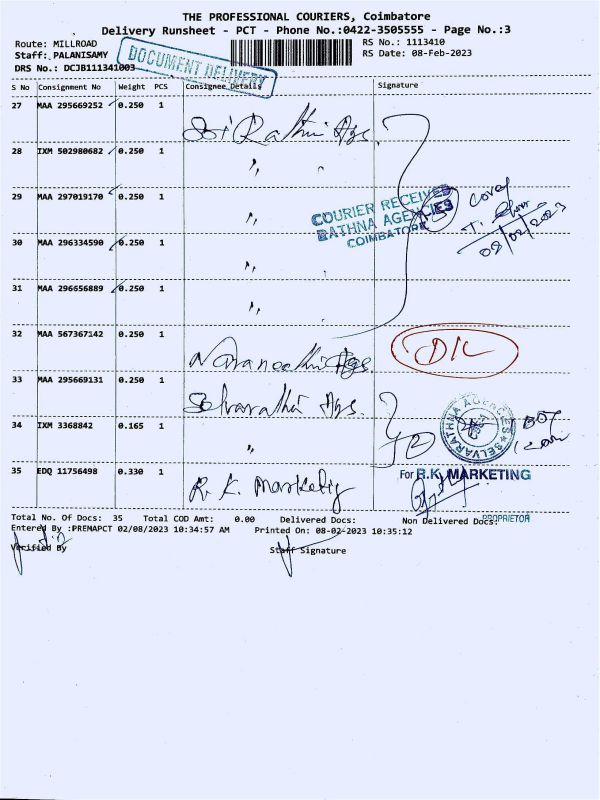 THE PROFESSIONAL COURIERS, Coimbatore
Delivery Runsheet - PCT - Phone No.:0422-3505555 - Page No.:3
Route: MILLROAD
RS No.: 1113410
Staff: PALANISAMY
RS Date: 08-Feb-2023
DOCUMENT DELIVERY
DRS No.: DCJB111341003
S No Consignment No Weight PCS Consignee Details Signature
27 MAA 295669252 0.250 1 Sri Rathni Ags
28 IXM 502980682 0.250 1 ,,
29 MAA 297019170 0.250 1 ,,
COURIER RECEIVED
RATHNA AGENCIES
COIMBATORE
5 cover
08/02/2023
30 MAA 296334590 0.250 1 ,,
31 MAA 296656889 0.250 1 ,,
32 MAA 567367142 0.250 1 Navaneethi Ags D/L
33 MAA 295669131 0.250 1 Selvarathi Ags
34 IXM 3368842 0.165 1 ,, 2
SELVARATHNA AGENCIES
35 EDQ 11756498 0.330 1 R.K. Marketig
For R.K. MARKETING
PROPRIETOR
Total No. Of Docs: 35 Total COD Amt: 0.00 Delivered Docs: Non Delivered Docs:
Entered By :PREMAPCT 02/08/2023 10:34:57 AM Printed On: 08-02-2023 10:35:12
Verified By Staff Signature